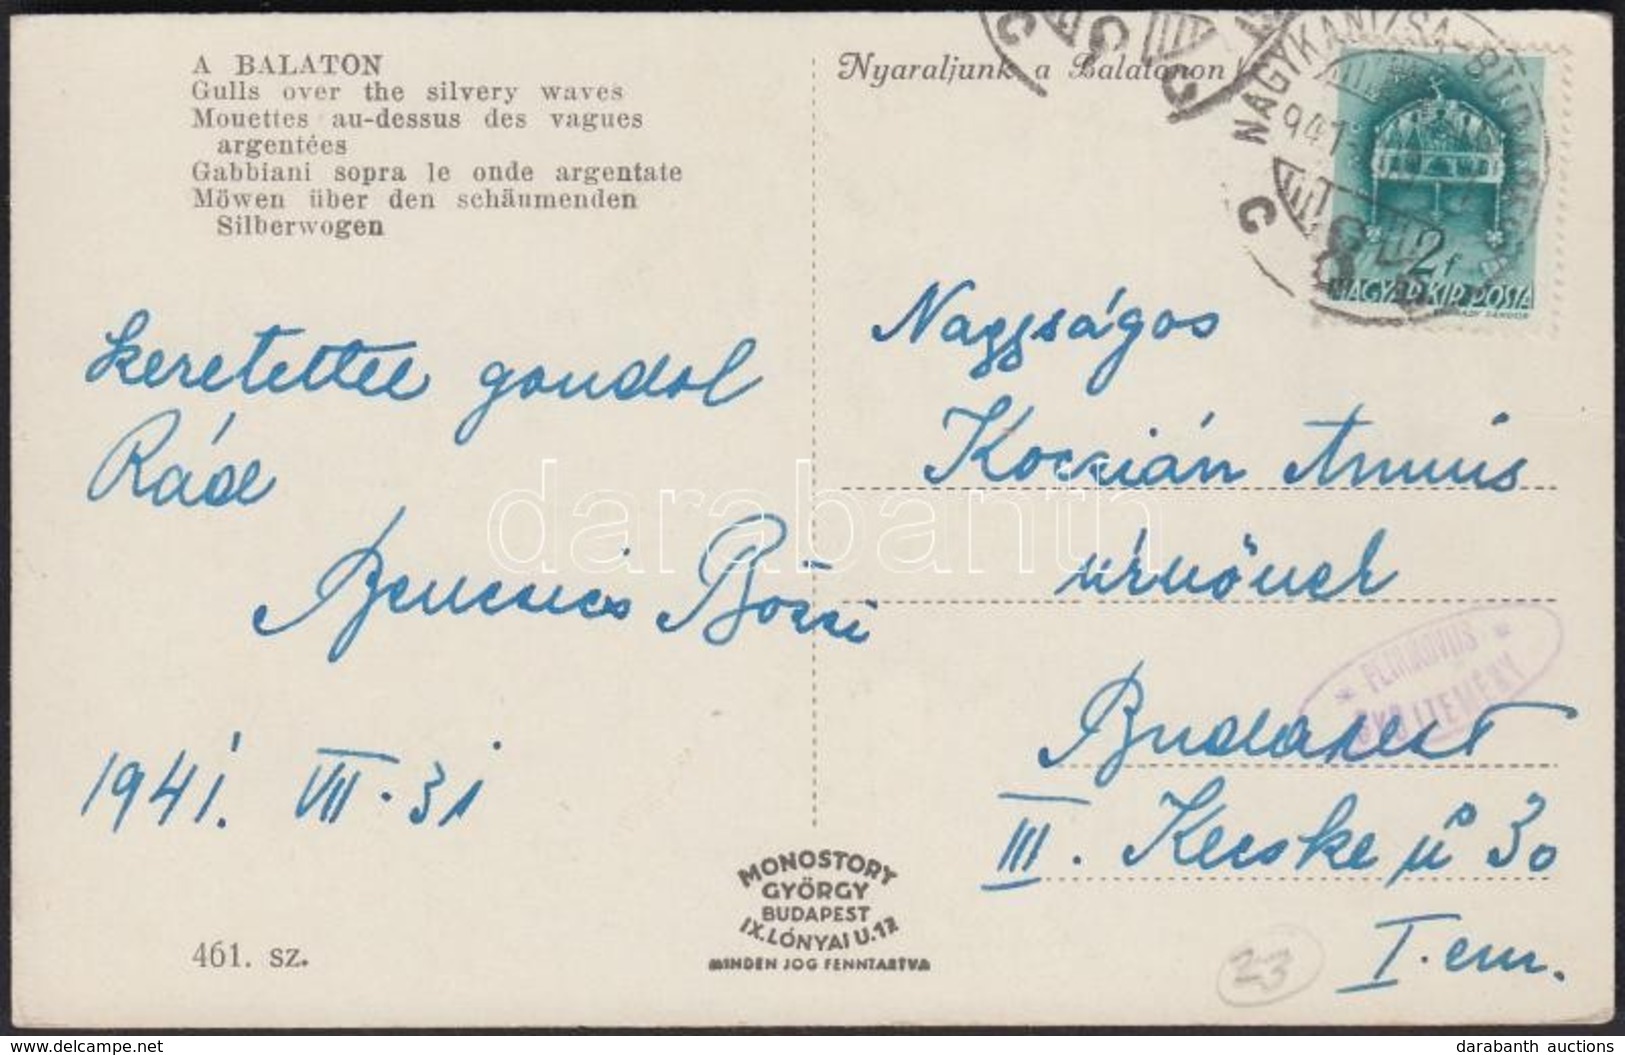 A BALATON
Gulls over the silvery waves
Mouettes au-dessus des vagues
argentées
Gabbiani sopra le onde argentate
Möwen über den schäumenden
Silberwogen
Nyaraljunk a Balatonon
NAGYKANIZSA-BUDAPEST
941
C
2f
MAGYAR KIR. POSTA
szeretettel gondol
Rád
Bencsics Bözsi
1941. VII. 31
Nagyságos
Koczián Annus
úrnőnek
Budapest
III. Kecske u 30
I. em.
PETRIKOVITS
GYŰJTEMÉNY
MONOSTORY
GYÖRGY
BUDAPEST
IX. LÓNYAI U. 12
MINDEN JOG FENNTARTVA
461. sz.
23
darabanth
www.delcampe.net
darabanth auctions